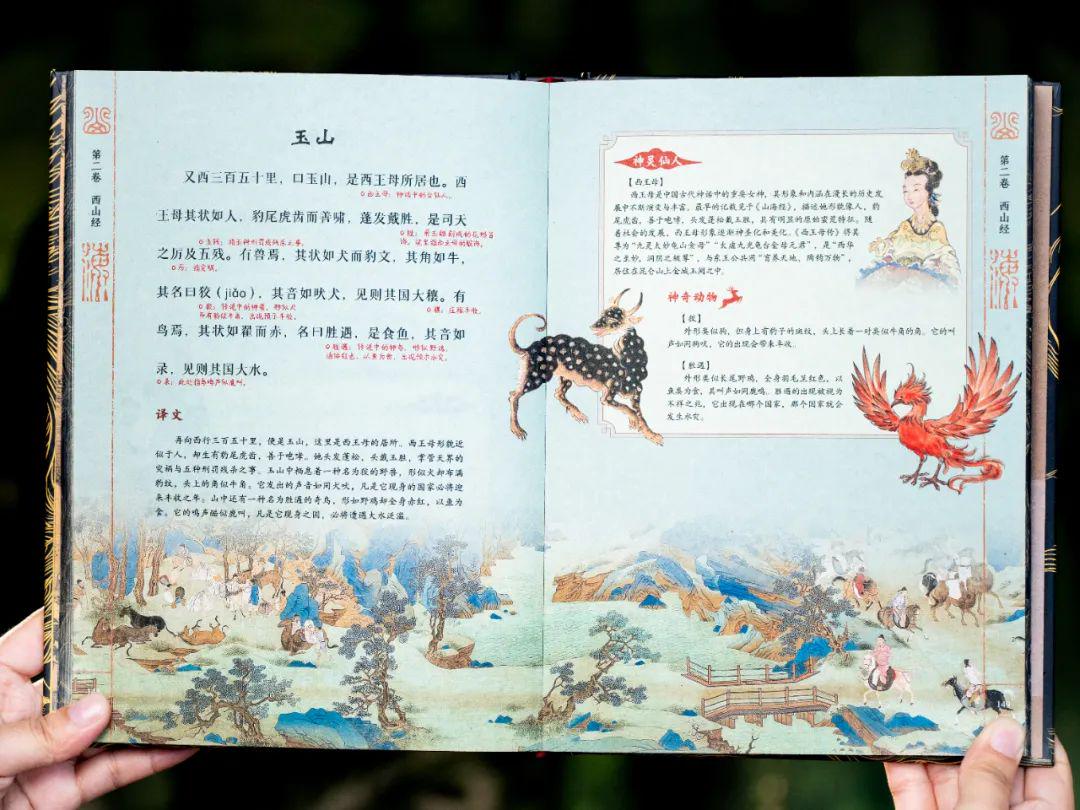 第二卷 西山经
玉山
又西三百五十里，曰玉山，是西王母所居也。西
西王母：神话中的女仙人。
王母其状如人，豹尾虎齿而善啸，蓬发戴胜，是司天
胜：用玉雕刻成的花形首
饰，这里指西王母的服饰。
之厉及五残。有兽焉，其状如犬而豹文，其角如牛，
其名曰狡（jiǎo），其音如吠犬，见则其国大穰。有
穰：庄稼丰收。
鸟焉，其状如翟而赤，名曰胜遇，是食鱼，其音如
录，见则其国大水。
录：此处指鸟鸣声似鹿叫。
译文
再向西行三百五十里，便是玉山，这里是西王母的居所。西王母形貌近
似于人，却生有豹尾虎齿，善于咆哮。她头发蓬松，头戴玉胜，掌管天界的
灾祸与五种刑罚残杀之事。玉山中栖息着一种名为狡的野兽，形似犬却布满
豹纹，头上的角似牛角。它发出的声音如同犬吠，凡是它现身的国家必将迎
来丰收之年。山中还有一种名为胜遇的奇鸟，形如野鸡却全身赤红，以鱼为
食。它的鸣声酷似鹿叫，凡是它现身之国，必将遭遇大水泛滥。
神灵仙人
【西王母】
西王母是中国古代神话中的重要女神，其形象和内涵在漫长的历史发
展中不断演变与丰富。最早的记载见于《山海经》，描述她形貌像人，豹
尾虎齿，善于咆哮，头发蓬松戴玉胜，具有明显的原始蛮荒特征。随
着社会的发展，西王母形象逐渐神圣化和美化。《西王母传》将其
尊为“九灵太妙龟山金母”“太虚九光龟台金母元君”，是“西华
之至妙，洞阴之极尊”，与东王公共同“育养天地，陶钧万物”，
居住在昆仑山上金城玉阙之中。
神奇动物
【狡】
外形类似狗，但身上有豹子的斑纹，头上长着一对类似牛角的角。它的叫
声如同狗吠，它的出现会带来丰收。
【胜遇】
外形类似长尾野鸡，全身羽毛呈红色，以
鱼类为食，其叫声如同鹿鸣。胜遇的出现被视为
不祥之兆，它出现在哪个国家，那个国家就会
发生水灾。
第二卷 西山经